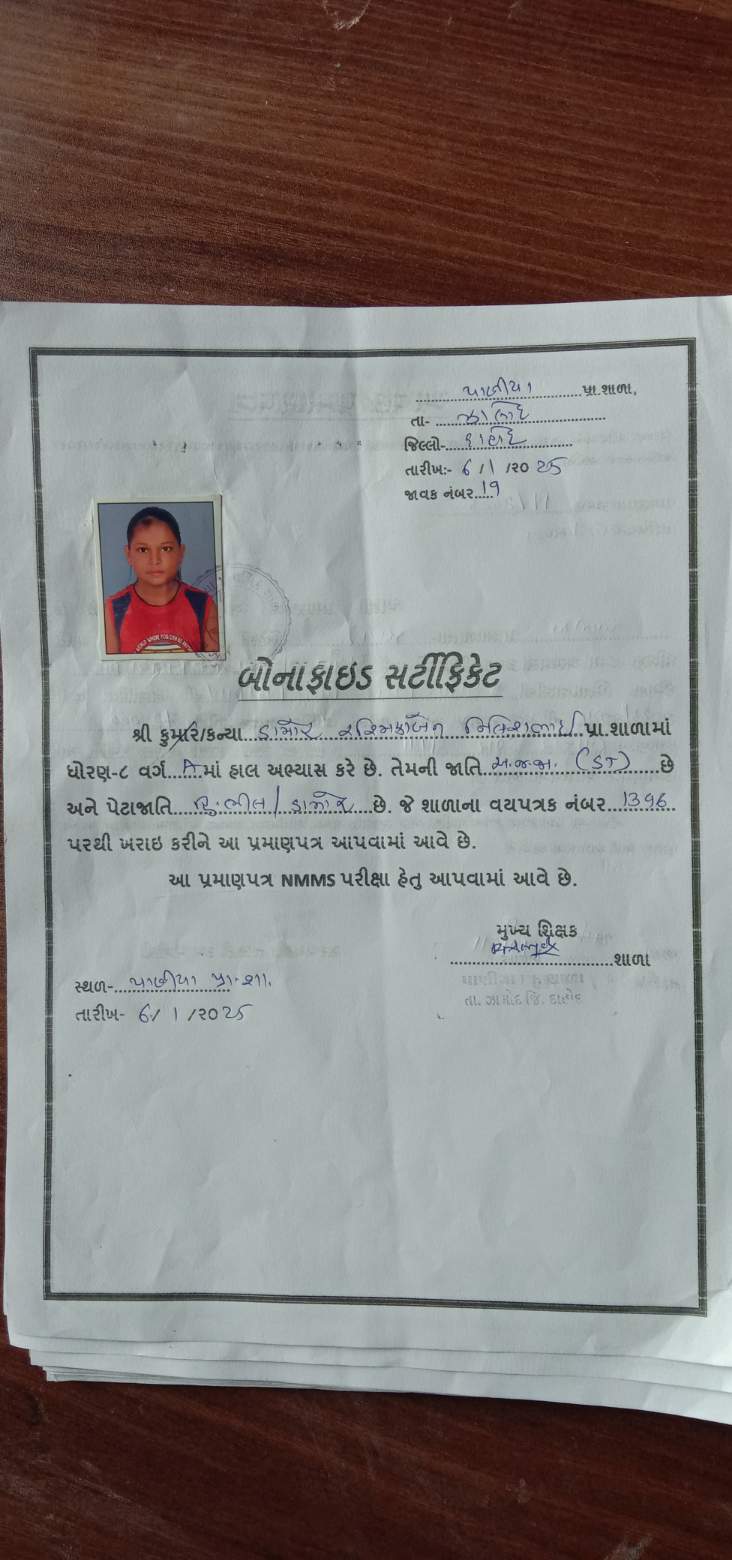 પ્રા.શાળા,
તા- ઝાલોદ
જિલ્લો- દાહોદ
તારીખ:- 6 / 1 /20 25
જાવક નંબર.....19
બોનાફાઇડ સર્ટીફિકેટ
શ્રી કુમાર/કન્યા...ડામોર પ્રા.શાળામાં
ધોરણ-૮ વર્ગ...A.માં હાલ અભ્યાસ કરે છે. તેમની જાતિ...અ.જ.જા. (ST)......છે
અને પેટાજાતિ...હિ.ભીલ / ડામોર...છે. જે શાળાના વયપત્રક નંબર...1396...
પરથી ખરાઇ કરીને આ પ્રમાણપત્ર આપવામાં આવે છે.
આ પ્રમાણપત્ર NMMS પરીક્ષા હેતુ આપવામાં આવે છે.
મુખ્ય શિક્ષક
શાળા
તા. ઝાલોદ જિ. દાહોદ
સ્થળ- પ્રા.શા.
તારીખ- 6 / 1 /2025